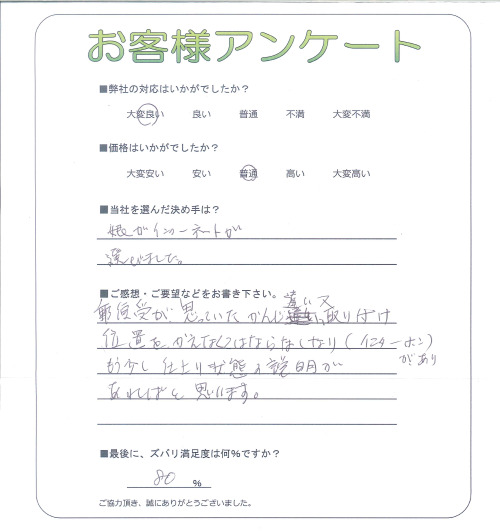 お客様アンケート
■弊社の対応はいかがでしたか？
大変良い 良い 普通 不満 大変不満
■価格はいかがでしたか？
大変安い 安い 普通 高い 大変高い
■当社を選んだ決め手は？
娘がインターネットが
選びました。
■ご感想・ご要望などをお書き下さい。
郵便受が思っていたかんじ違い又取り付け
位置をかえなくてはならなくなり(インターホン)
があり
もう少し仕上り状態の説明が
あればと思います。
■最後に、ズバリ満足度は何％ですか？
80 ％
ご協力頂き、誠にありがとうございました。